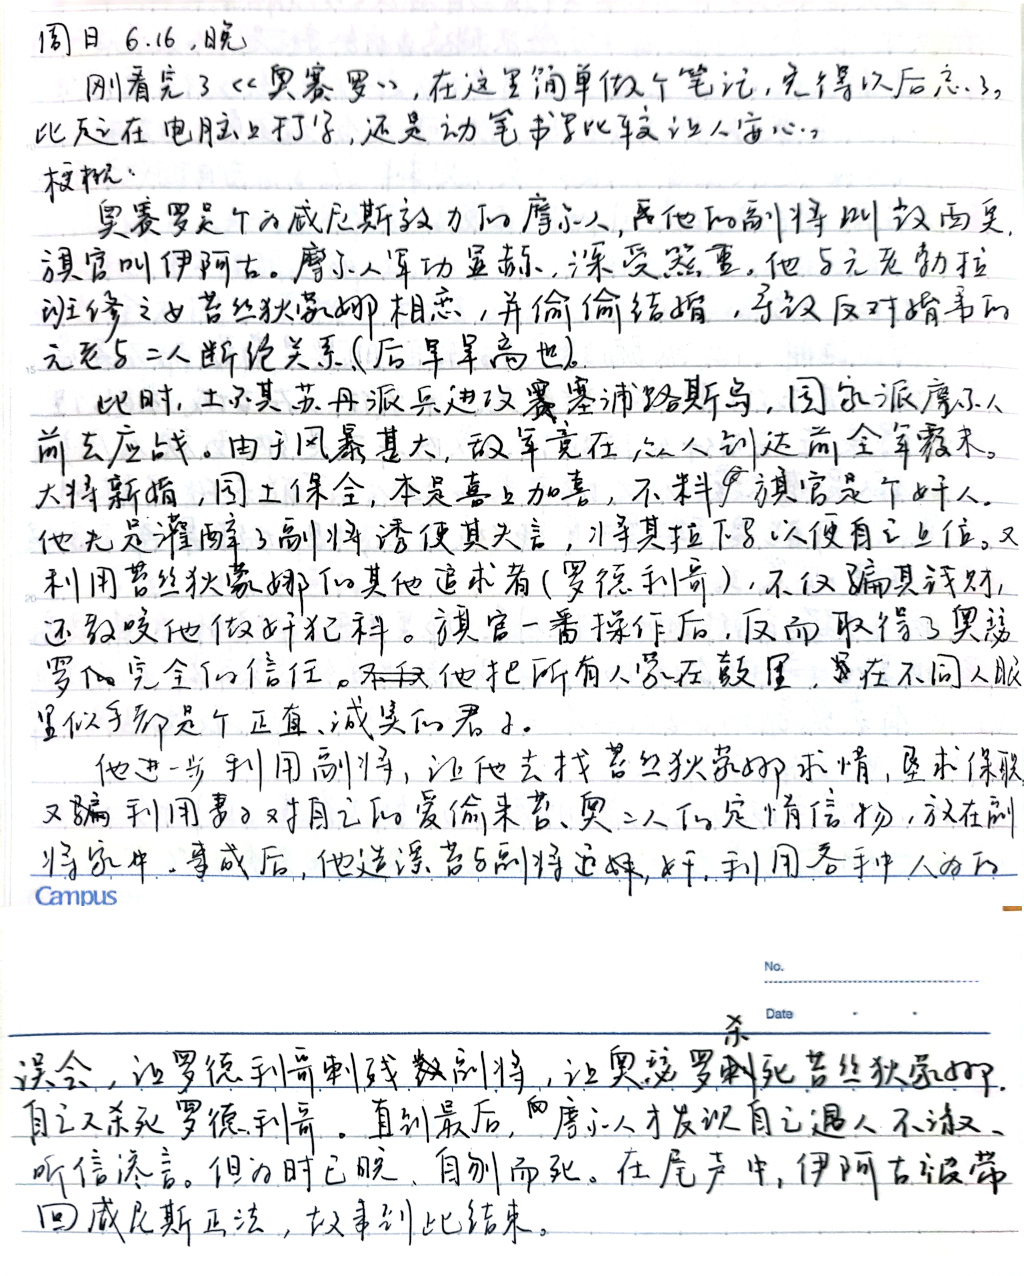 周日 6.16,晚
刚看完了《奥赛罗》,在这里简单做个笔记,免得以后忘了。
比起在电脑上打字,还是动笔书写比较让人安心。
梗概:
奥赛罗是个为威尼斯效力的摩尔人,他的副将叫凯西奥,
旗官叫伊阿古。摩尔人军功显赫,深受器重。他与元老勃拉
班修之女苔丝狄蒙娜相恋,并偷偷结婚,导致反对婚事的
元老与二人断绝关系(后早早离世)。
此时,土尔其苏丹派兵进攻塞浦路斯岛,国家派摩尔人
前去应战。由于风暴甚大,敌军竟在众人到达前全军覆末。
大将新婚,国土保全,本是喜上加喜,不料旗官是个奸人。
他先是灌醉了副将诱使其失言,将其拉下马以便自己上位。又
利用苔丝狄蒙娜的其他追求者(罗德利哥),不仅骗其钱财,
还教唆他做奸犯科。旗官一番操作后,反而取得了奥赛
罗的完全的信任。他把所有人蒙在鼓里,在不同人眼
里似乎都是个正直、诚实的君子。
他进一步利用副将,让他去找苔丝狄蒙娜求情,恳求保职
又利用妻子对自己的爱偷来苔、奥二人的定情信物,放在副
将家中。事成后,他造谣苔与副将通奸,利用各种人为的
Campus
No.
Date
误会,让罗德利哥刺残副将,让奥赛罗杀死苔丝狄蒙娜.
自己又杀死罗德利哥。直到最后,摩尔人才发现自己遇人不淑、
听信谗言。但为时已晚,自刎而死。在尾声中,伊阿古被带
回威尼斯正法,故事到此结束。